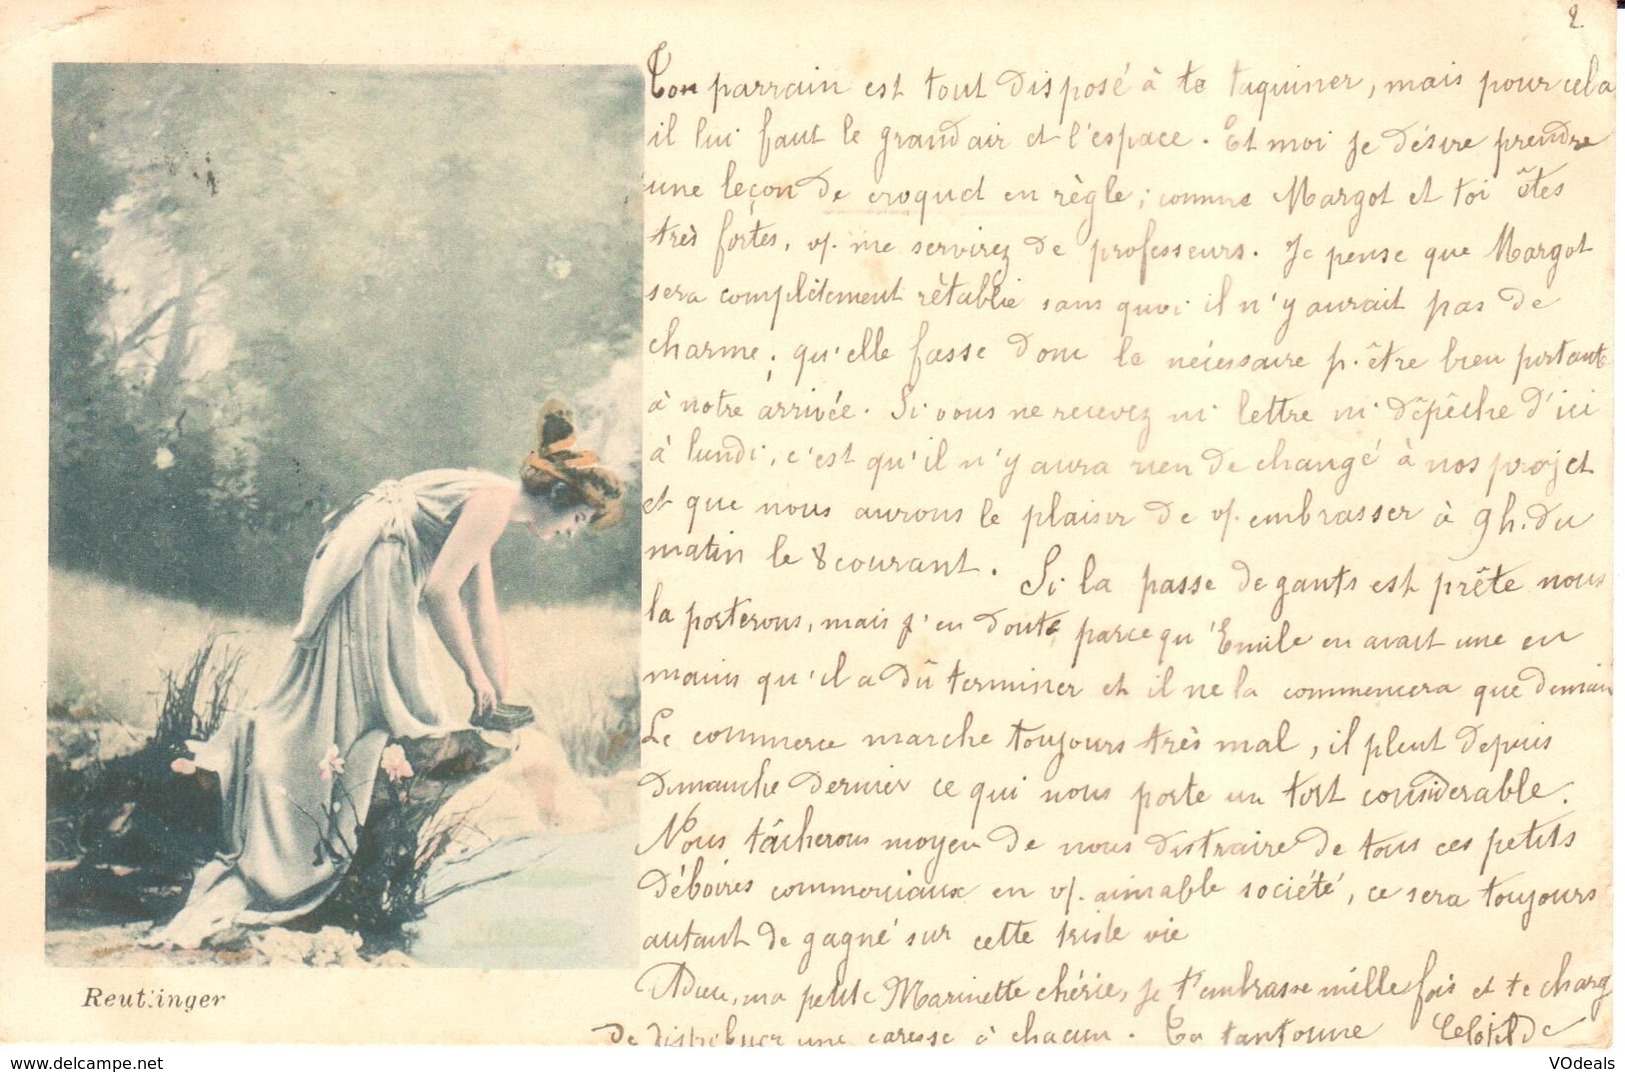 2
Ton parrain est tout disposé à te taquiner, mais pour cela
il lui faut le grand air et l'espace. Et moi je désire prendre
une leçon de croquet en règle ; comme Margot et toi êtes
très fortes, v/. me servirez de professeurs. Je pense que Margot
sera complètement rétablie sans quoi il n'y aurait pas de
charme ; qu'elle fasse donc le nécessaire p. être bien portante
à notre arrivée. Si vous ne recevez ni lettre ni dépêche d'ici
à lundi, c'est qu'il n'y aura rien de changé à nos projet
et que nous aurons le plaisir de v/. embrasser à 9 h. du
matin le 8 courant. Si la passe de gants est prête nous
la porterons, mais j'en doute parce qu'Emile en avait une en
main qu'il a dû terminer et il ne la commencera que demain
Le commerce marche toujours très mal, il pleut depuis
dimanche dernier ce qui nous porte un tort considérable.
Nous tâcherons moyen de nous distraire de tous ces petits
déboires commerciaux en v/. aimable société, ce sera toujours
autant de gagné sur cette triste vie
Adieu, ma petite Marinette chérie, je t'embrasse mille fois et te charg
de distribuer une caresse à chacun. Ta tantoune Clotilde
Reutlinger
www.delcampe.net
VOdeals